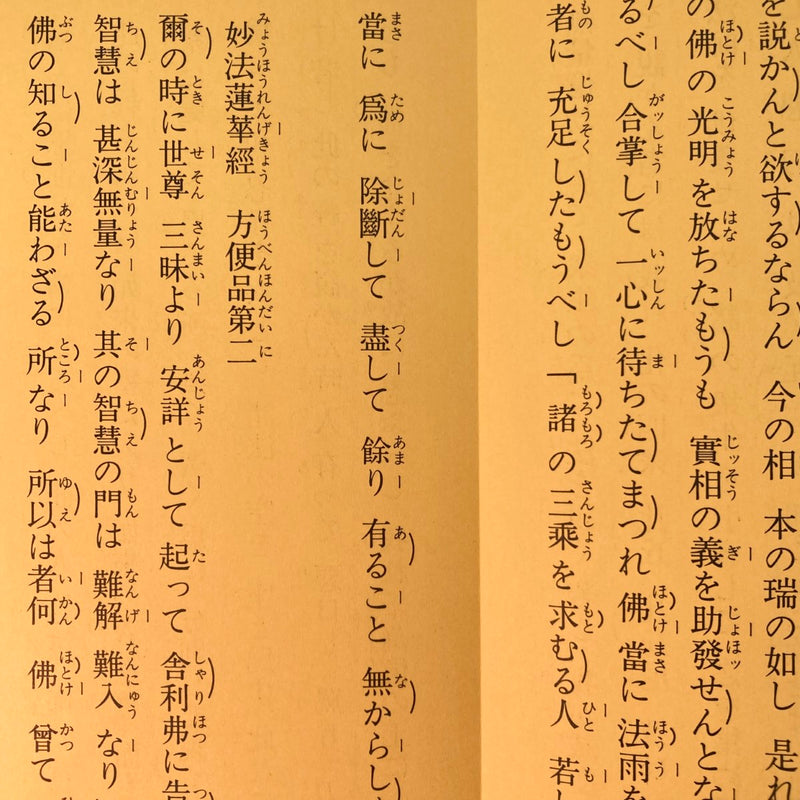 を説かんと欲するならん 今の相 本の瑞の如し 是れ
の佛の光明を放ちたもうも 實相の義を助發せんとな
るべし合掌して一心に待ちたてまつれ 佛 當に 法雨を
者に 充足したもうべし「諸の三乘を求むる人 若し
當に 爲に 除斷して 盡して 餘り 有ること 無からし
妙法蓮華經 方便品第二
爾の時に世尊 三昧より 安詳として 起って 舍利弗に告
智慧は 甚深無量なり 其の智慧の門は 難解 難入 なり
佛の知ること能わざる 所なり 所以は者何 佛 曾て